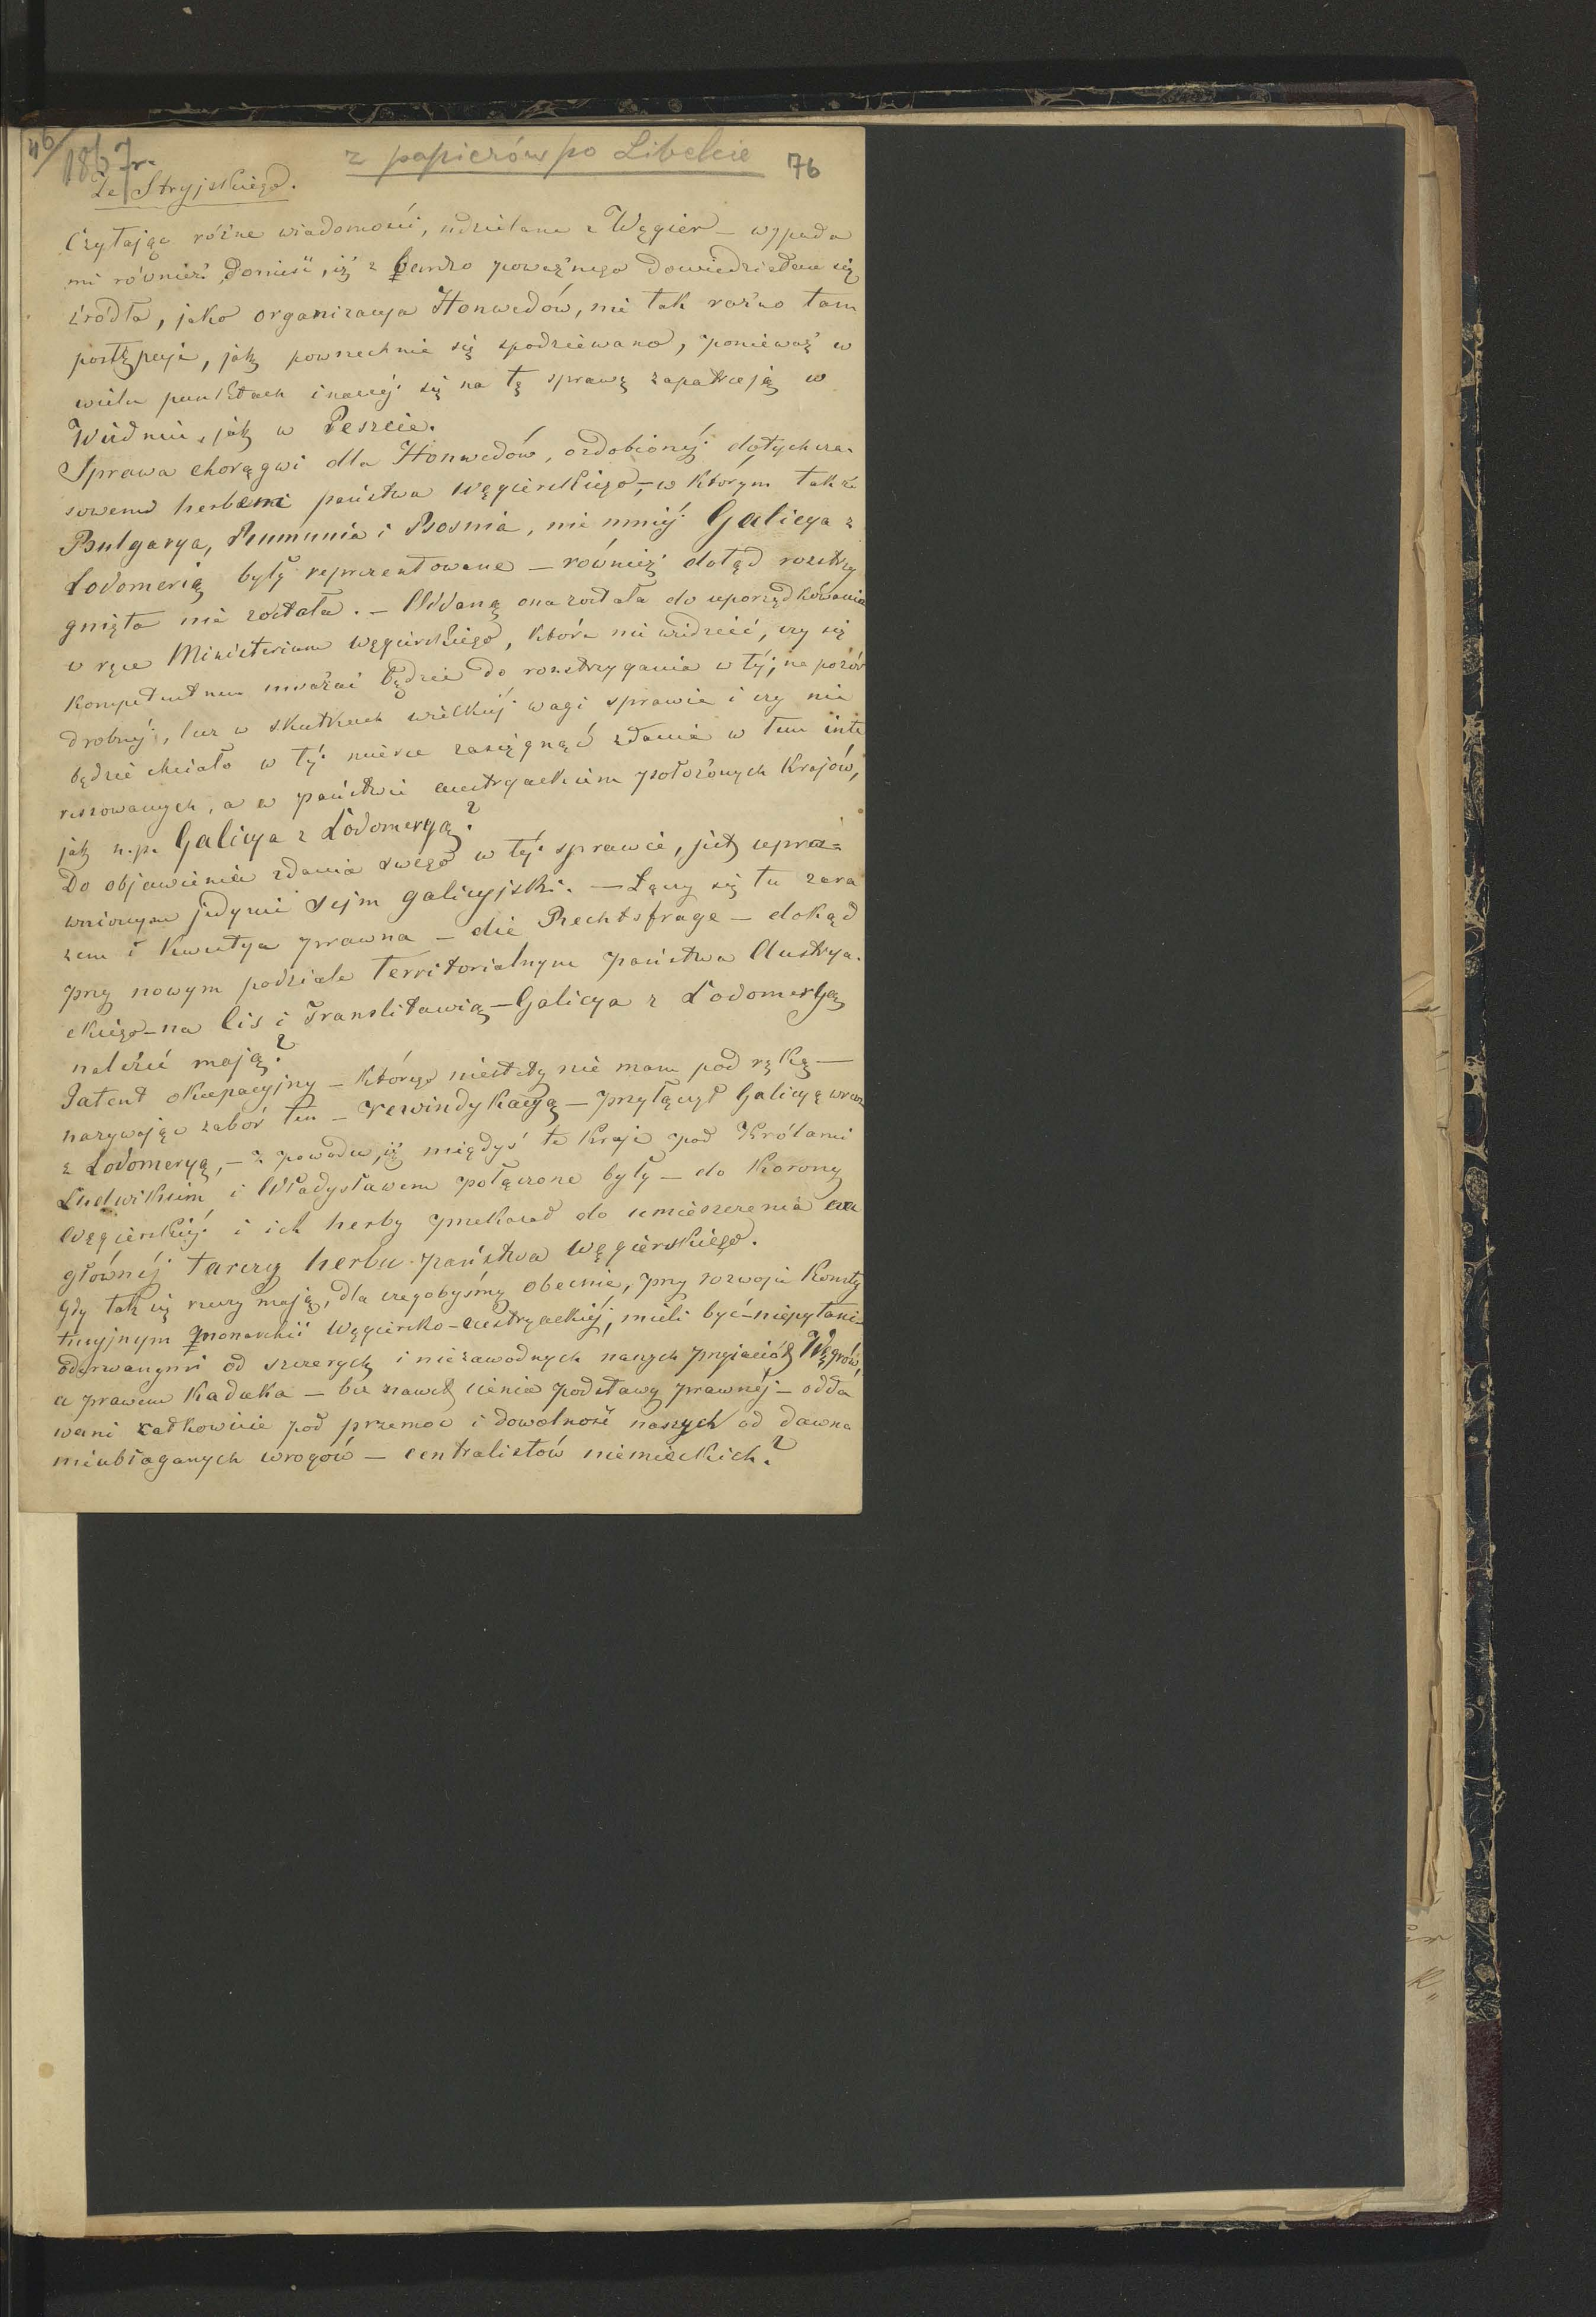 46/
1867r.
z papierów po Libelcie
76
Ze Stryjskiego.
Czytając różne wiadomości, udzielane z Węgier – wypada
mi również donieść, iż z bardzo poważnego dowiedziałem się
źródła, jako organizacya Honwedów, nie tak raźno tam
postępuje, jak powszechnie się spodziewano, ponieważ w
wielu punktach inaczéj się na tę sprawę zapatrują w
Wiedniu, jak w Peszcie.
Sprawa chorągwi dla Honwedów, ozdobionéj dotychcza-
sowemi herbami państwa węgierskiego, – w którym także
Bulgarya, Rumunia i Bosnia, nie mniéj Galicya z
Lodomerią były reprezentowane – również dotąd rozstrzy
gnięta nie została. – Oddaną ona została do uporządkowania
w ręce Ministerium węgierskiego, które nie wiedzieć, czy się
kompetentnem uważać będzie do rozstrzygania w téj, na pozór
drobnéj, lecz w skutkach wielkiéj wagi sprawie i czy nie
będzie chciało w téj mierze zasięgnąć zdanie w tem inte
ressowanych, a w państwie austryackiem położonych krajów,
jak n.p. Galicya z Lodomeryą?
Do objawienia zdania swego w téj sprawie, jest upra-
wnionym jedynie Sejm galicyjski. – Łączy się tu zara
zem i kwestya prawna – die Rechtsfrage – dokąd
przy nowym podziale territorialnym państwa Austrya-
ckiego – na Cis i Translitawią – Galicya z Lodomeryą
należeć mają?
Patent okupacyjny – którego niestety nie mam pod ręką –
nazywając zabór ten – rewindykacyą – przyłączył Galicyę wraz
z Lodomeryą, – z powodu, iż niegdyś te kraje pod Królami
Ludwikiem i Władysławem połączone były – do Korony
węgierskiéj i ich herby przekazał do umieszczenia na
głównéj tarczy herbu państwa węgierskiego.
Gdy tak się rzeczy mają, dla czegobyśmy obecnie, przy rozwoju konsty
tucyjnym monarchii węgiersko-austryackiéj, mieli być – niepytani –
oderwanymi od szczerych i niezawodnych naszych przyjaciół Węgrów,
a prawem kaduka – bez nawet cienia podstawy prawnéj – odda
wani całkowicie pod przemoc i dowolność naszych od dawna
nieubłaganych wrogów – centralistów niemieckich?